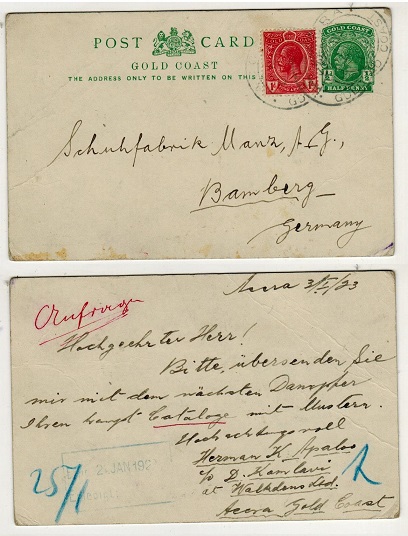 POST CARD
GOLD COAST
THE ADDRESS ONLY TO BE WRITTEN ON THIS
GOLD COAST
½d
HALF PENNY
1d
Schuhfabrik Manz, A.G.,
Bamberg
Germany
Accra 3/I/23
Anfrage
Hochgeehrter Herr!
Bitte, übersenden Sie
mir mit dem nächsten Dampfer
Ihren haupt Cataloge mit Mustern.
Hochachtungsvoll
Herman K. Apaloo
c/o D. Kamlavi
at Walkdensded.
Accra Gold Coast
2-JAN 192
25/1